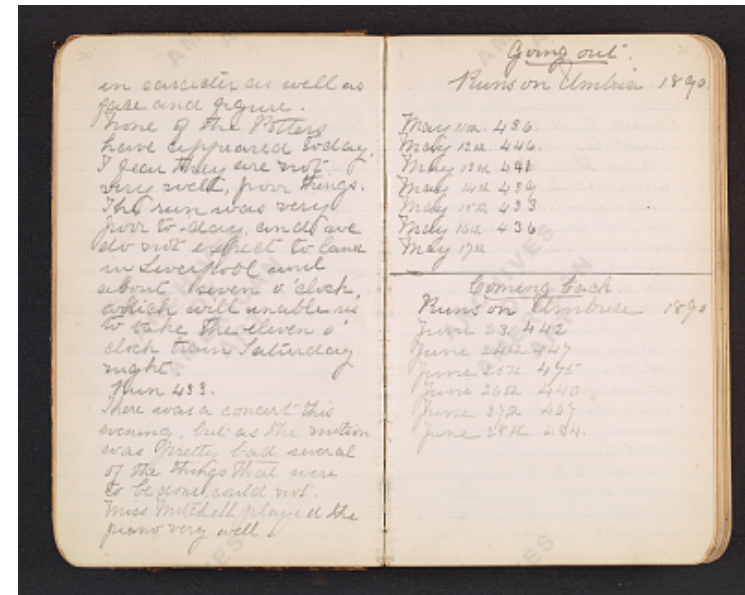 20
in caracter as well as
face and figure.
None of the Potters
have appeared today,
I fear they are not
very well, poor things.
The run was very
poor to-day, and we
do not expect to land
in Liverpool until
about seven o'clock,
which will unable us
to take the eleven o'
clock train Saturday
night.
Run 433.
There was a concert this
evening, but as the motion
was pretty bad several
of the things that were
to be done, could not.
Miss Mitchell played the
piano very well.
21
Going out.
Runs on Umbria 1890.
May 11th 456.
May 12th 446.
May 13th
May 14th 459
May 15th 433
May 16th 436
May 17th
Coming back.
Runs on Umbria 1890
June 23. 442
June 24th 447
June 25th 475
June 26th 440
June 27th
June 28th
ARCHIVES
AMERICAN